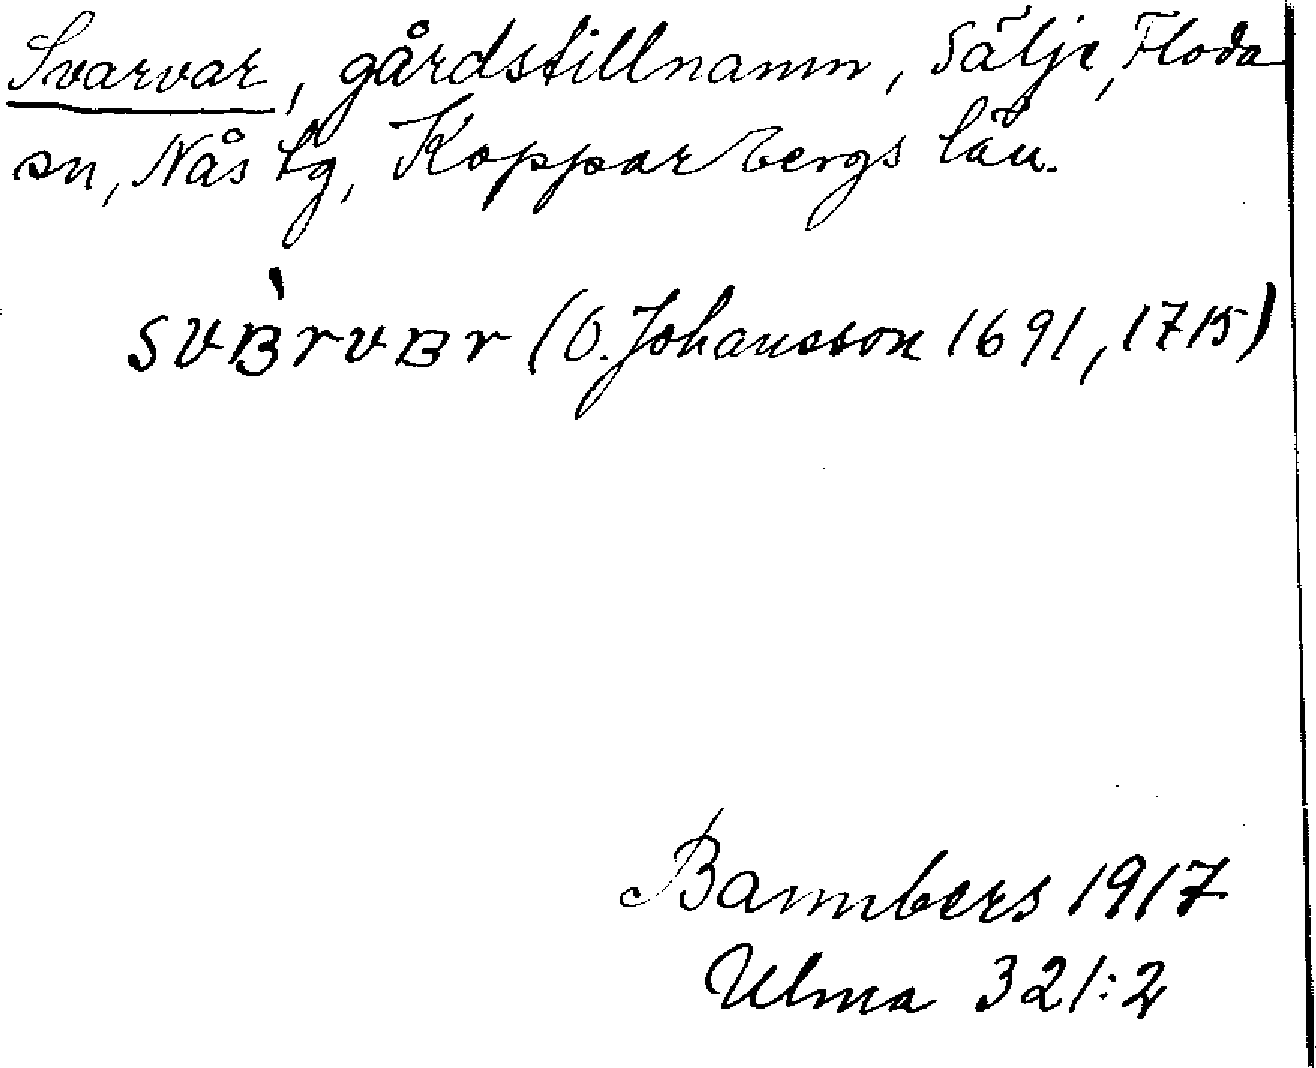 Svarvar, gårdstillnamn, Sälje, Floda
sn, Nås tg, Kopparbergs län.
svʙ̀rvʙr (O. Johansson 1691, 1715)
Bannbers 1917
Ulma 321:2